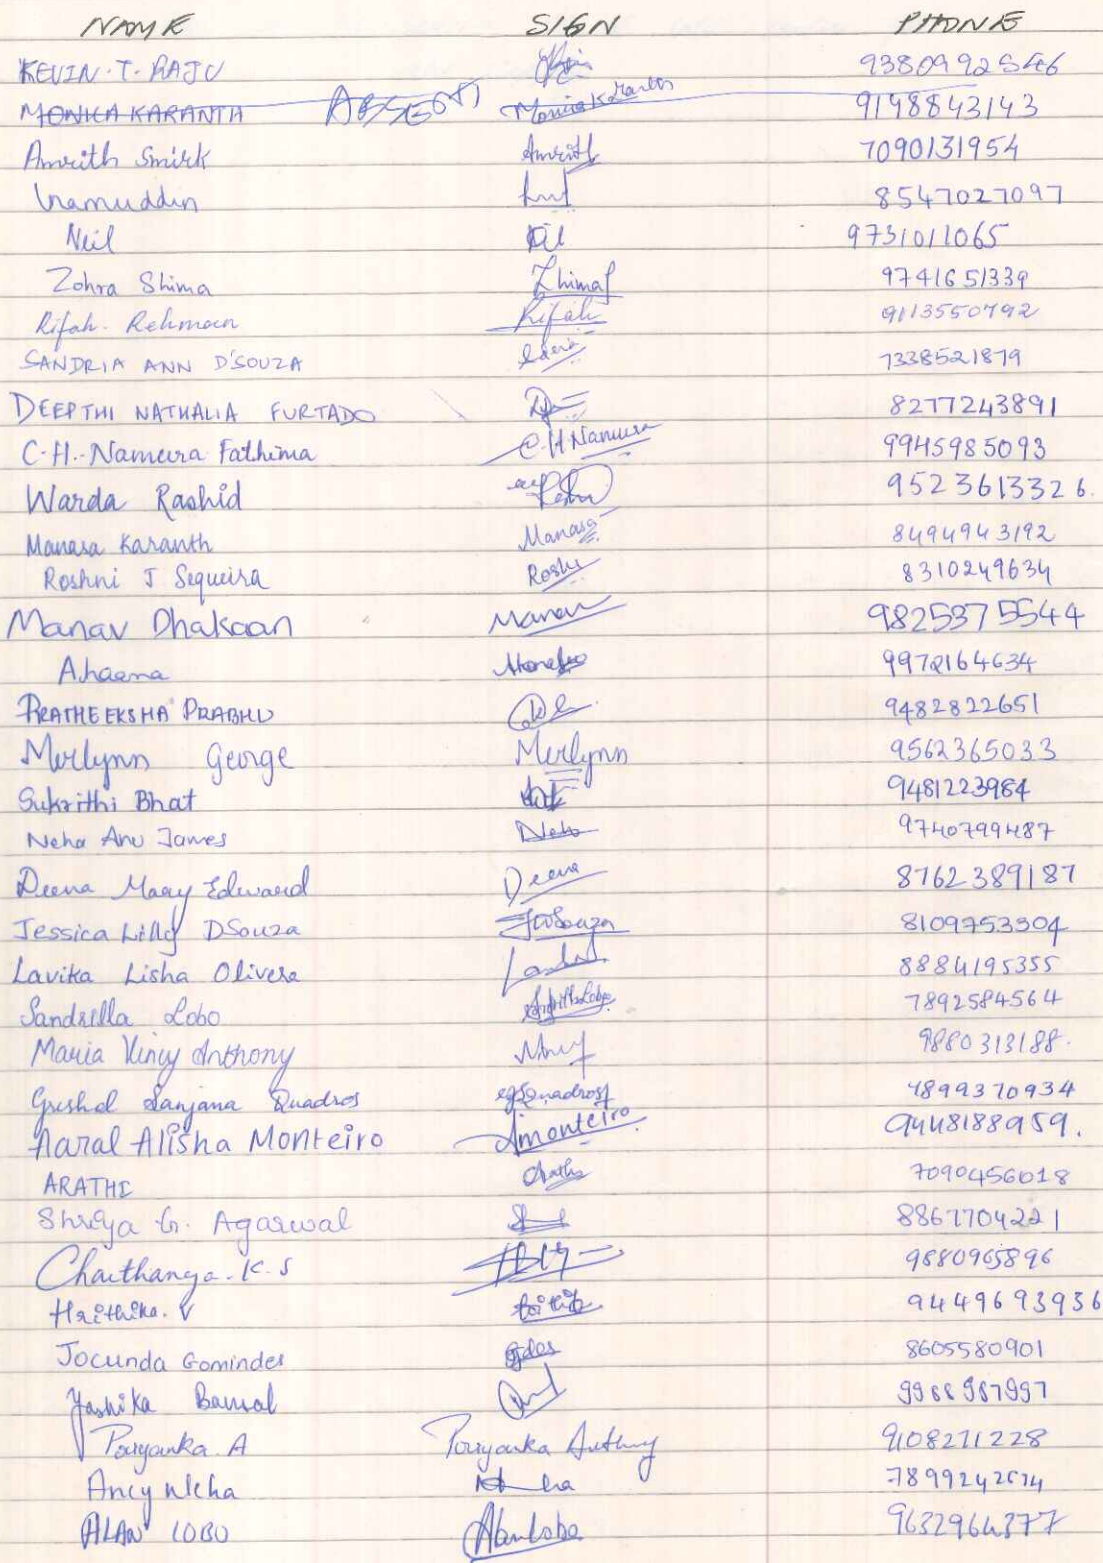 NAME SIGN PHONE
KEVIN. T. RAJU 9380992546
MONIKA KARANTH ABSENT Monika Karanth 9148843143
Amrith Smirk Amrith 7090131954
Iramuddin 8547027097
Neil Neil 9731011065
Zohra Shima Zhima 9741651339
Rifah. Rehman Rifah 9113550792
SANDRIA ANN D'SOUZA 7338521879
DEEPTHI NATHALIA FURTADO 8277243891
C.H. Nameera Fathima C.H Nameera 9945985093
Warda Rashid 9523613326.
Manasa Karanth Manasa 8494943192
Roshni J Sequeira Roshni 8310249634
Manav Dhakaan Manav 9825375544
Ahaana 9972164634
PRATHEEKSHA PRABHU 9482822651
Merlynn George Merlynn 9562365033
Sukrithi Bhat 9481223984
Neha Anu James Neha 9740799487
Deena Mary Edward Deena 8762389187
Jessica Lilly DSouza JDSouza 8109753304
Lavika Lisha Olivera 8884195355
Sandrilla Lobo 7892584564
Maria Vincy Anthony 9880313188.
Greshel Sanjana Quadros Quadros 7899370934
Aaral Alisha Monteiro Amonteiro 9448188959.
ARATHI Arathi 7090456018
Shreya G. Agarwal 8867704221
Chaithanya. K. S 9880965896
Hrithika. V 9449693936
Jocunda Gomindes 8605580901
Yashika Bansal 9966987997
Priyanka. A Priyanka Anthony 9108271228
Ancy Neha
ALAN LOBO Alan Lobo 9632964377